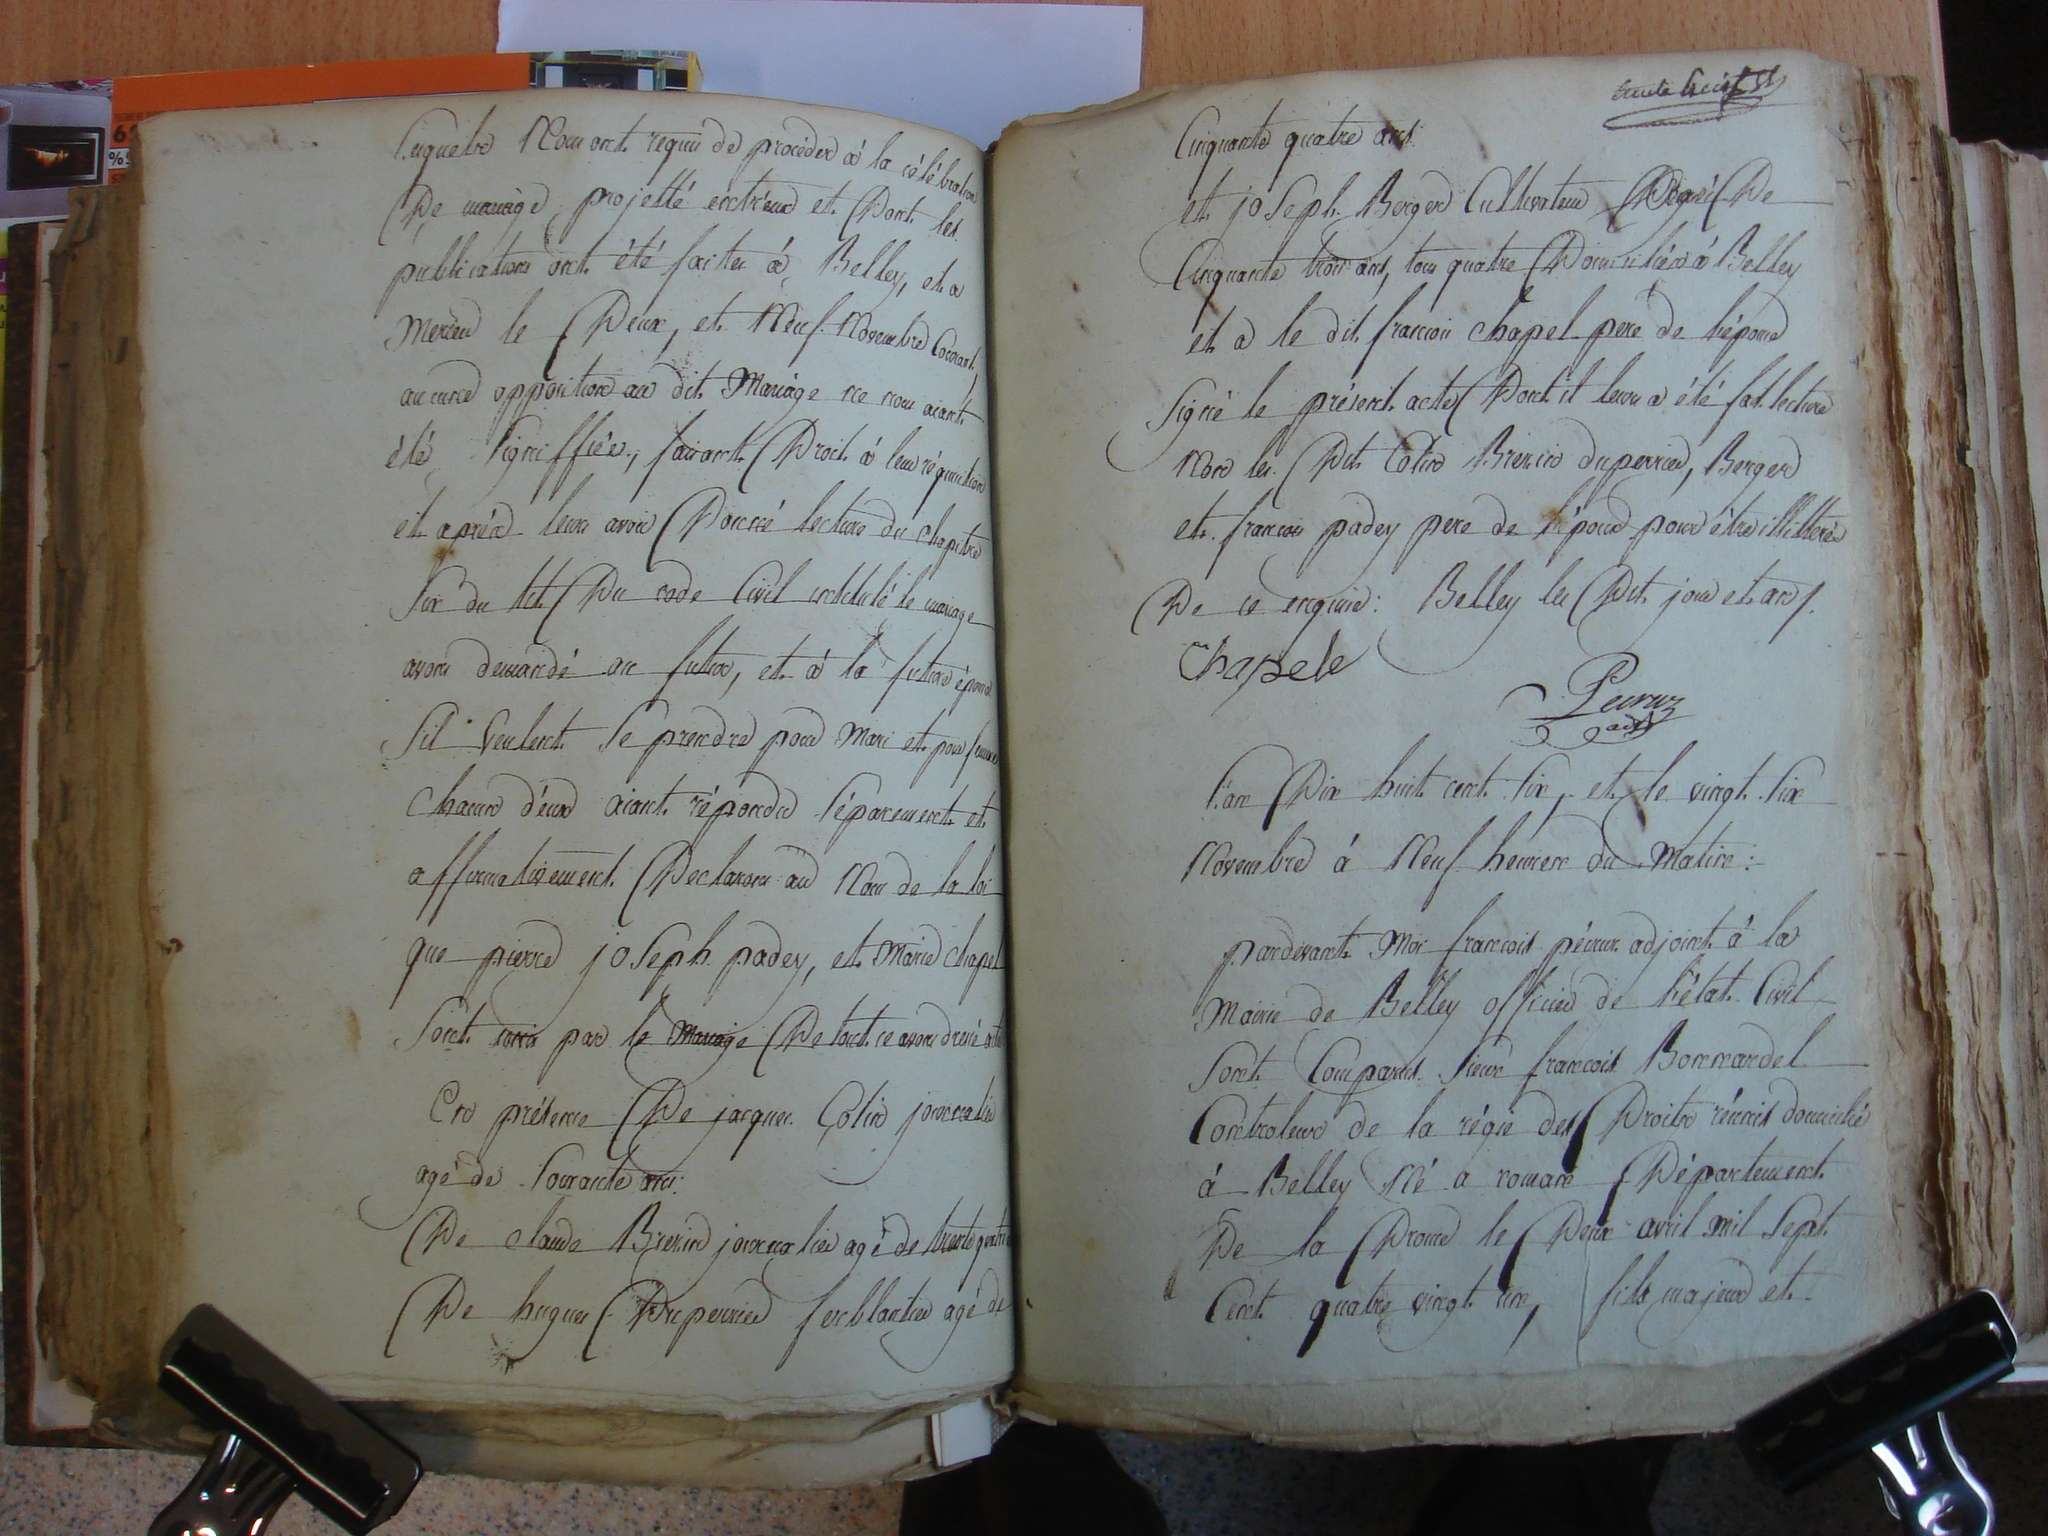 Lesquels Nous ont requis de procéder à la célébration
De mariage projetté entr'eux et Dont les
publications ont été faites à Belley, et a
Merieu le Deux, et Neuf Novembre Courant,
aucune opposition au dit Mariage ne nous aiant
été Signiffiée, faisant Droit à leur réquisition
et après leur avoir Donné lecture du chapitre
Six du tit. Du code Civil intitulé le mariage
avons demandé au futur, et à la future épouse
S'il veulent Se prendre pour Mari et pour femme
Chacun d'eux aiant répondu Séparement et
affirmativement Declarons au Nom de la loi
que pierre joSeph padey, et Marie Chapel
Sont unis par le Mariage De tout ce avons dressé acte
En présence De jacques Colin journalier
agé de Soixante ans:
De claude Brenin journalier agé de trente quatre
De hugues Duperrier ferblantier agé de
Cinquante quatre ans:
et joSeph Berger Cultivateur agé De
Cinquante trois ans, tous quatre Domiciliés à Belley
et a le dit francois Chapel pere de l'épouse
Signé le présent acte Dont il leur a été fat lecture
Non les Dit Colin Brenin duperrier, Berger
et francois padey pere de l'époux pour être illitteré
De ce enquis: Belley les Dit jour et an
Chapele
Peuvux
adjt
L'an Dix huit cent Six, et le vingt Six
Novembre à Neuf heures du Matin:
pardevant Moi francois péuvux adjoint à la
Mairie de Belley officier de l'état Civil
Sont Comparus Sieur francois Bonnardel
Controleur de la régie des Droits réunis domicilié
à Belley Né a romans Département
De la Drome le Deux avril mil Sept
Cent quatre vingt un, fils majeur et